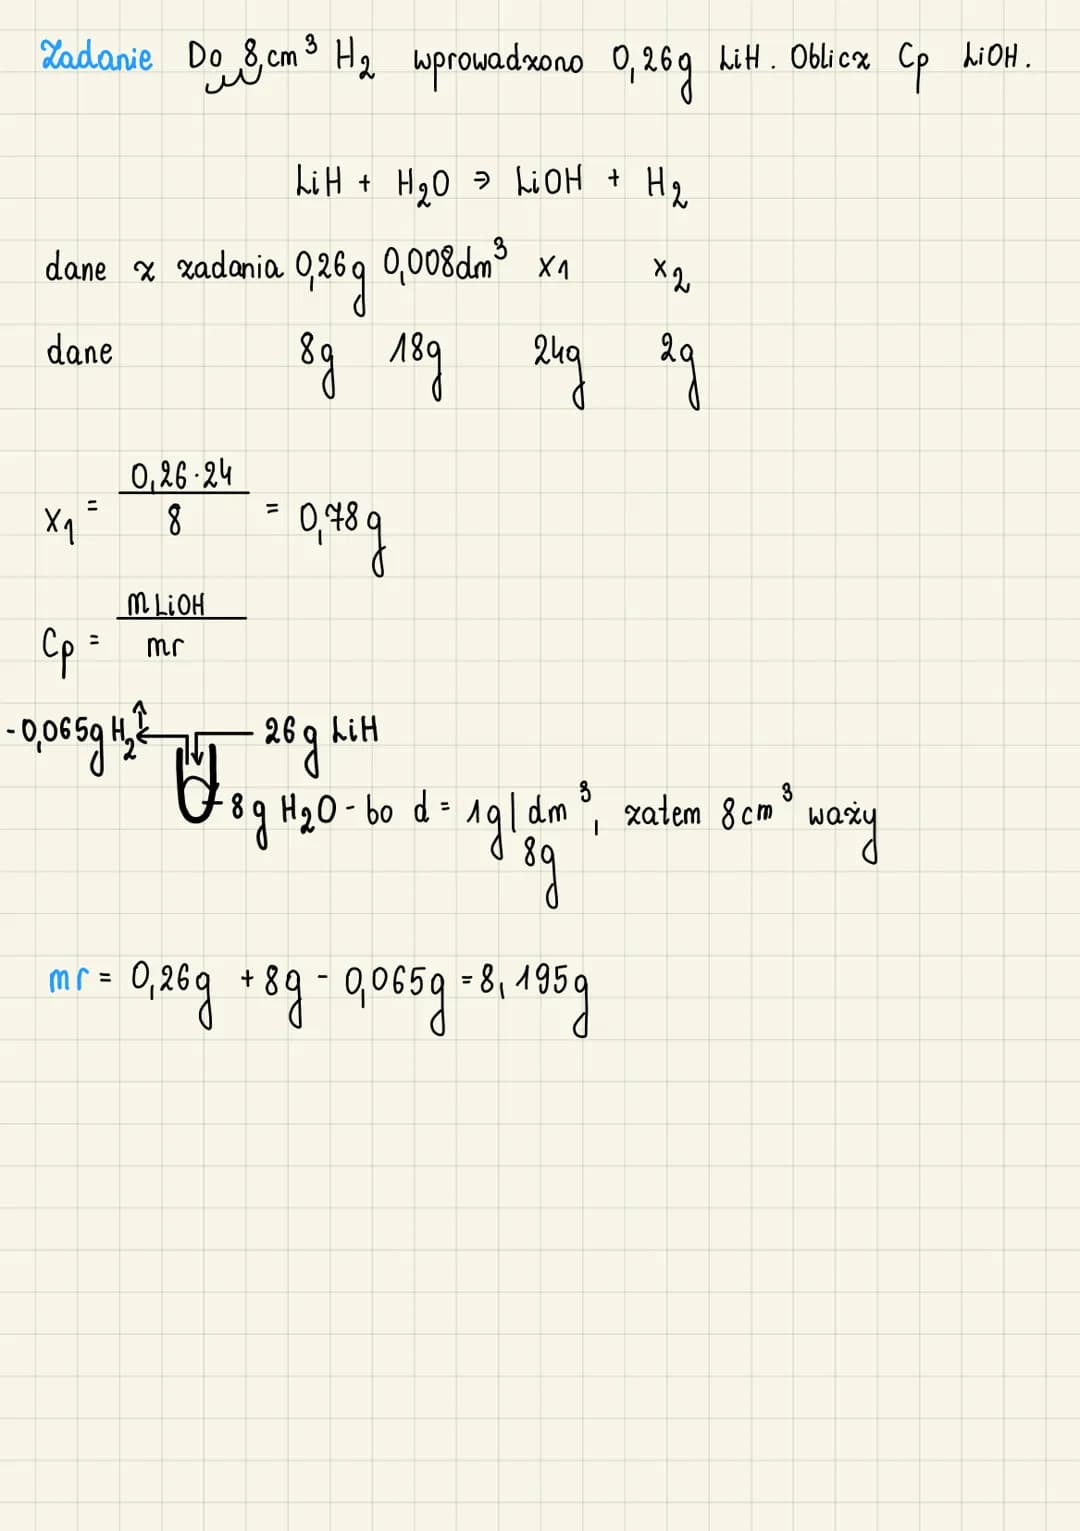 Zadanie Do 8 cm³ H₂ wprowadzono 0,26g LiH. Oblicz Cp LiOH.
LiH + H₂O ⇒ LiOH + H₂
dane z zadania 0,26g 0,008dm³ x1 x₂
dane 8g 18g 24g 2g
x₁ = 0,26·24 / 8 = 0,78g
Cp = m LiOH / mr
-0,065g H₂↑ 26g LiH
8g H₂O - bo d = 1g|dm³, zatem 8cm³ waży
8g
mr = 0,26g + 8g - 0,065g = 8,195g